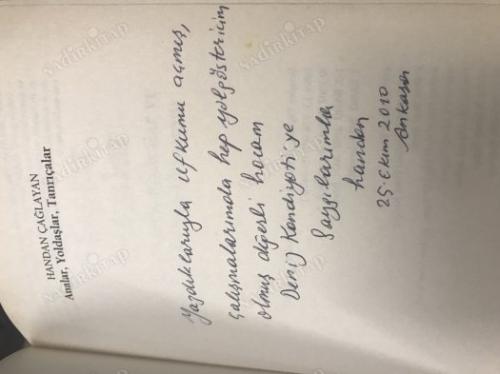 HANDAN ÇAĞLAYAN
Analar, Yoldaşlar, Tanrıçalar
Yazdıklarıyla ufkumu açmış,
çalışmalarımda hep yolgöstericim
olmuş değerli hocam
Deniz Kandiyoti'ye
Saygılarımla
handan
25 Ekim 2010
Ankara